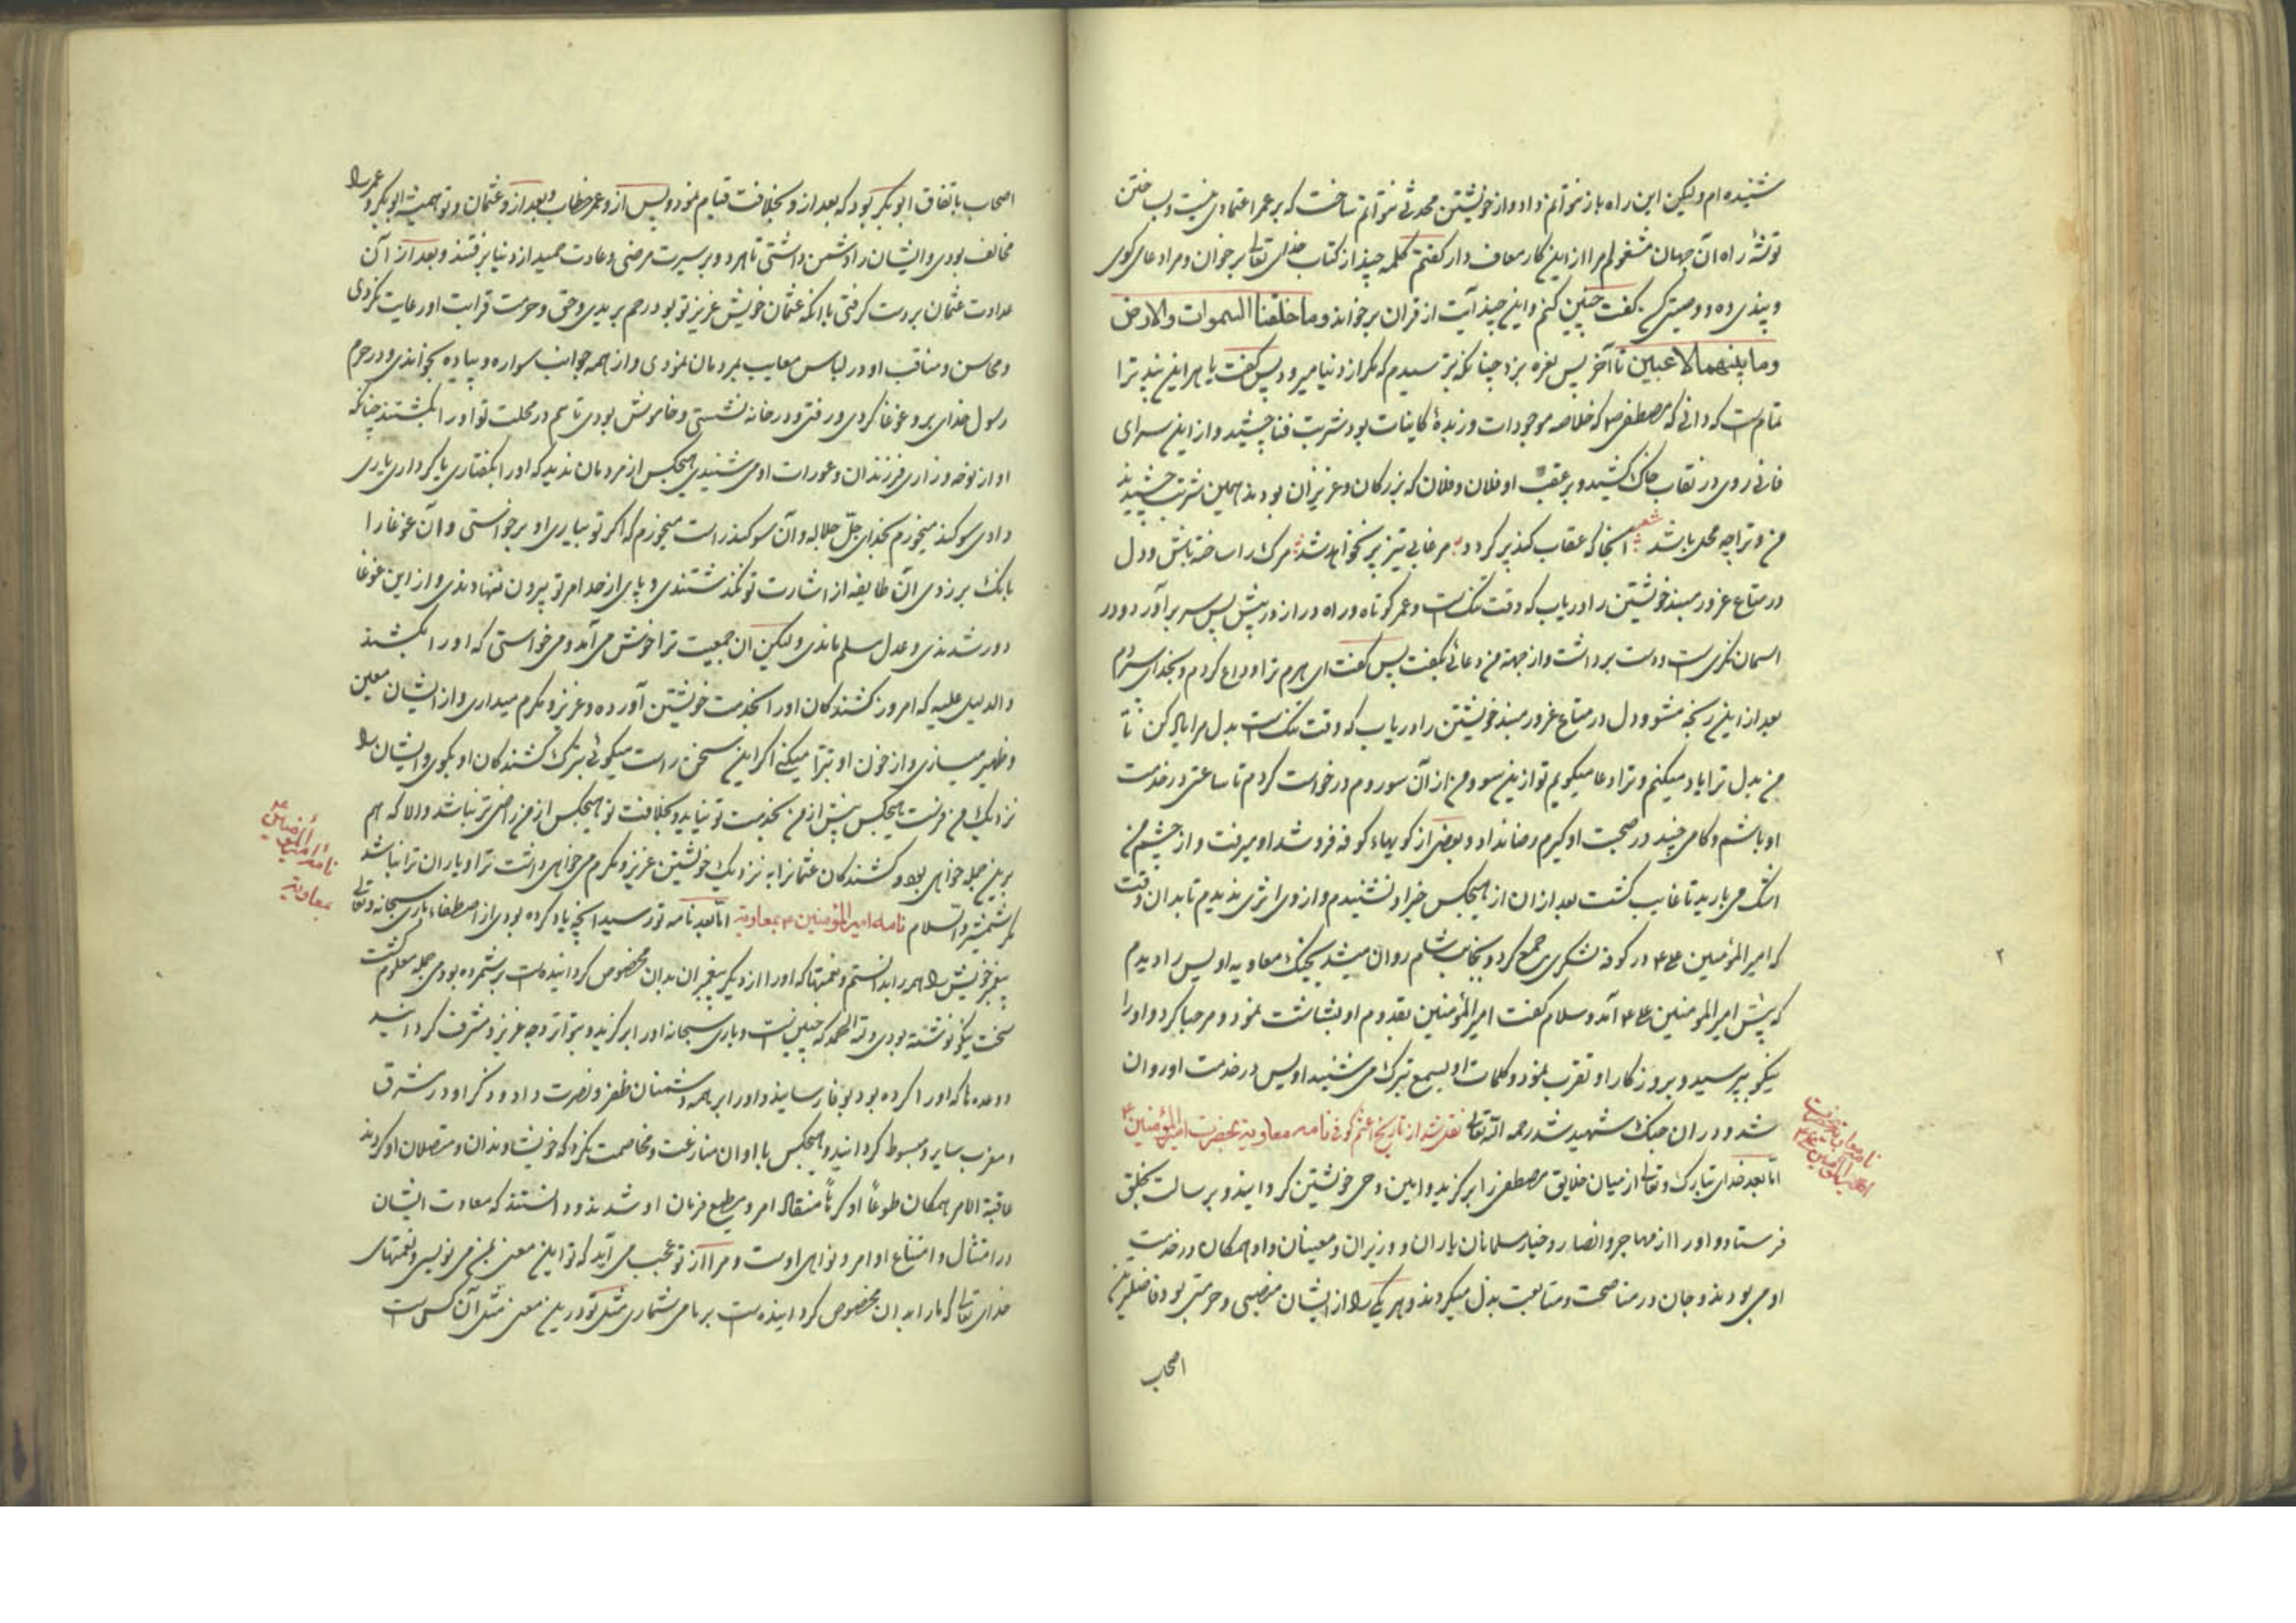 شنیده ام ولیکن این راه باز نتوانم داد و از خویشتن محدثی نتوانم ساخت که بر عمر اعتمادی نیست و بساختن
توشهٔ راه آن جهان مشغولم مرا ازین کار معاف دار گفتم کلمهٔ چند از کتاب خدای تعالی بر خوان و مرا دعای گوی
و پندی ده و وصیتی کن گفت چنین کنم و این چند آیت از قران بر خواند وما خلقنا السموات والارض
وما بینهما لاعبین تا آخر پس نعره بزد چنانکه بترسیدم که مگر از دنیا میرود پس گفت یا هرم این پند ترا
تمامست که دانی که مصطفی ص که خلاصه موجودات و زبدهٔ کاینات بود شربت فنا چشید و از این سرای
فانی روی در نقاب خاک کشید و بر عقب او فلان و فلان که بزرگان و عزیزان بودند همین شربت چشیدند
من و ترا چه محل باشد شعر آنجا که عقاب کند پر گردد مرغابی تیز پر نخواهد شد مرگ را ساخته باش و دل
در متاع غرور مبند خویشتن را دریاب که وقت تنگست و عمر کوتاه و راه دراز در پیش پس سر برآورد و در
اسمان نگریست و دست برداشت و از جهة من دعائی بگفت پس گفت ای هرم ترا وداع کردم و بخدای سپردم
بعد ازاین رنجه مشو و دل در متاع غرور مبند خویشتن را دریاب که وقت تنگست بدل مرا یاد کن تا
من بدل ترا یاد میکنم و ترا دعا میگویم تو ازین سو و من از آن سو روم درخواست کردم تا ساعتی در خدمت
او باشم و کامی چند در صحبت او گیرم رضا نداد و بعضی از کویهاء کوفه فرو شد او میرفت و از چشم من
اشک می بارید تا غایب گشت بعد ازان از هیچکس خبر او نشنیدم و از وی اثری ندیدم تا بدان وقت
که امیر المؤمنین علی ع در کوفه لشکری جمع کرد و بجانب شام روان میشد بجنگ معاویه اویس را دیدم
که پیش امیر المؤمنین علی ع آمد و سلام گفت امیر المؤمنین بقدوم او بشاشت نمود و مرحبا کرد و او را
نیکو بپرسید و بروزگار او تقرب نمود و کلمات او بسمع تبرک می شنید اویس در خدمت او روان
شد و در ان جنگ شهید شد رحمه الله تعالی نقل شد از تاریخ اعثم کوفی نامه معاویه بحضرت امیر المؤمنین ع
اما بعد خدای تبارک و تعالی از میان خلایق مصطفی را برگزید و امین وحی خویشتن گردانید و برسالت بخلق
فرستاد و او را از مهاجر و انصار و خیار مسلمانان یاران و وزیران و معینان داد و همگان در خدمت
او می بودند و جان در مناصحت و متابعت بذل میکردند و هر یکی را از ایشان منصبی و حرمتی بود فاضلترین
اصحاب
نامه معاویه بحضرت
امیر المؤمنین علی ع
۲
اصحاب باتفاق ابو بکر بود که بعد از و بخلافت قیام نمود و پس از و عمر خطاب و بعد از و عثمان و تو همیشه ابو بکر و عمر را
مخالف بودی و ایشان را دشمن داشتی تا هر دو بر سیرت مرضی و عادت حمید از دنیا برفتند و بعد از آن
عداوت عثمان بر دست گرفتی با آنکه عثمان خویش عزیز تو بود رحم ببریدی و حق و حرمت قرابت او رعایت نکردی
و محاسن و مناقب او در لباس معایب بمردمان نمودی و از همه جوانب سواره و پیاده بخواندی و در حرم
رسول خدای بر و غوغا کردی و رفتی و در خانه نشستی و خاموش بودی تا هم در محلت تو او را بکشتند چنانکه
اواز نوحه و زاری فرزندان و عورات او می شنیدی هیچکس از مردمان ندید که او را بگفتاری یا کرداری یاری
دادی سوگند میخورم بخدای جل جلاله و آن سوگند راست میخورم که اگر تو بیاری او برخواستی و آن غوغا را
بانک بر زدی آن طایفه از اشارت تو نگذشتندی و پای از حد امر تو بیرون ننهادندی و از این غوغا
دور شدندی و عدل مسلم ماندی ولیکن ان جمعیت ترا خوش می آمد و می خواستی که او را بکشند
و الدلیل علیه که امروز کشندکان او را بخدمت خویشتن آورده و عزیز و مکرم میداری و از ایشان معین
و ظهیر میسازی و از خون او تبرا میکنی اگر این سخن راست میگوئی بترک کشندکان او بگوی و ایشان را
نزدیک من فرست هیچکس پیش از من بخدمت تو نیاید و بخلافت تو هیچکس از من راضی تر نباشد و الا که هم
برین جمله خواهی بود و کشندکان عثمانرا به نزدیک خویشتن عزیز و مکرم می خواهی داشت ترا و یاران ترا نباشد
مگر شمشیر و السلام نامه امیر المؤمنین ع بمعاویه اما بعد نامه تو رسید آنچه یاد کرده بودی از اصطفاء باری سبحانه و تعالی
پیغمبر خویش را همه را بدانستم و نعمتها که او را از دیگر پیغمبران بدان مخصوص گردانیده است برشمرده بودی جمله معلوم گشت
سخت نیکو نوشته بودی ولله الحمد که چنین است و باری سبحانه او را برگزید و بتواتر وحی عزیز و مشرف گردانید
و وعده ها که او را کرده بود بوفا رسانید و او را بر همه دشمنان ظفر و نصرت داد و ذکر او در مشرق
و مغرب سایر و مبسوط گردانید و هیچکس با او ان منازعت و مخاصمت نکرد که خویشاوندان و متصلان او کردند
عاقبة الامر همگان طوعا او کرها منقاد امر و مطیع فرمان او شدند و دانستند که سعادت ایشان
در امتثال و اتباع اوامر و نواهی اوست و مرا از تو عجب می آید که تو این معنی بمن می نویسی و نعمتهای
خدای تعالی که ما را بدان مخصوص گردانیده است بر ما می شماری مثل تو درین معنی مثل آن کس است
نامه امیر المؤمنین ع
بمعاویه